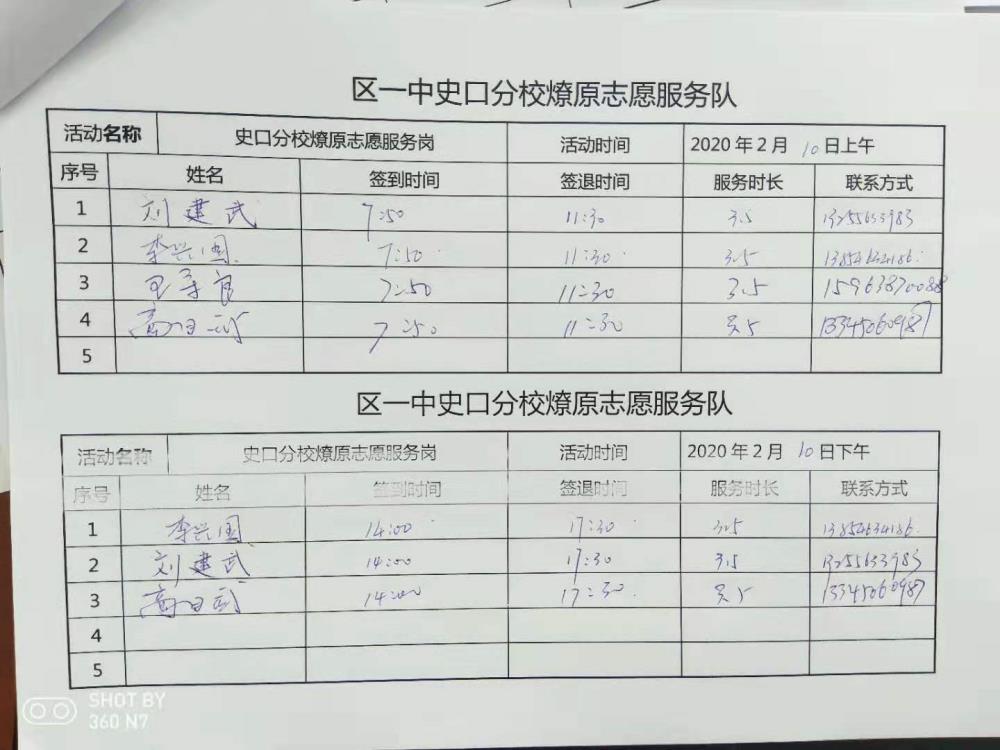 区一中史口分校燎原志愿服务队
活动名称 史口分校燎原志愿服务岗 活动时间 2020年2月 10日上午
序号 姓名 签到时间 签退时间 服务时长 联系方式
1 刘建武 7:50 11:30 3.5 13255633983
2 李兴国 7:50 11:30 3.5 13854634186
3 7:50 11:30 3.5 15963870088
4 7:50 11:30 3.5 13345060987
5
区一中史口分校燎原志愿服务队
活动名称 史口分校燎原志愿服务岗 活动时间 2020年2月 10日下午
序号 姓名 签到时间 签退时间 服务时长 联系方式
1 李兴国 14:00 17:30 3.5 13854634186
2 刘建武 14:00 17:30 3.5 13255633983
3 14:00 17:30 3.5 13345060987
4
5
SHOT BY
360 N7